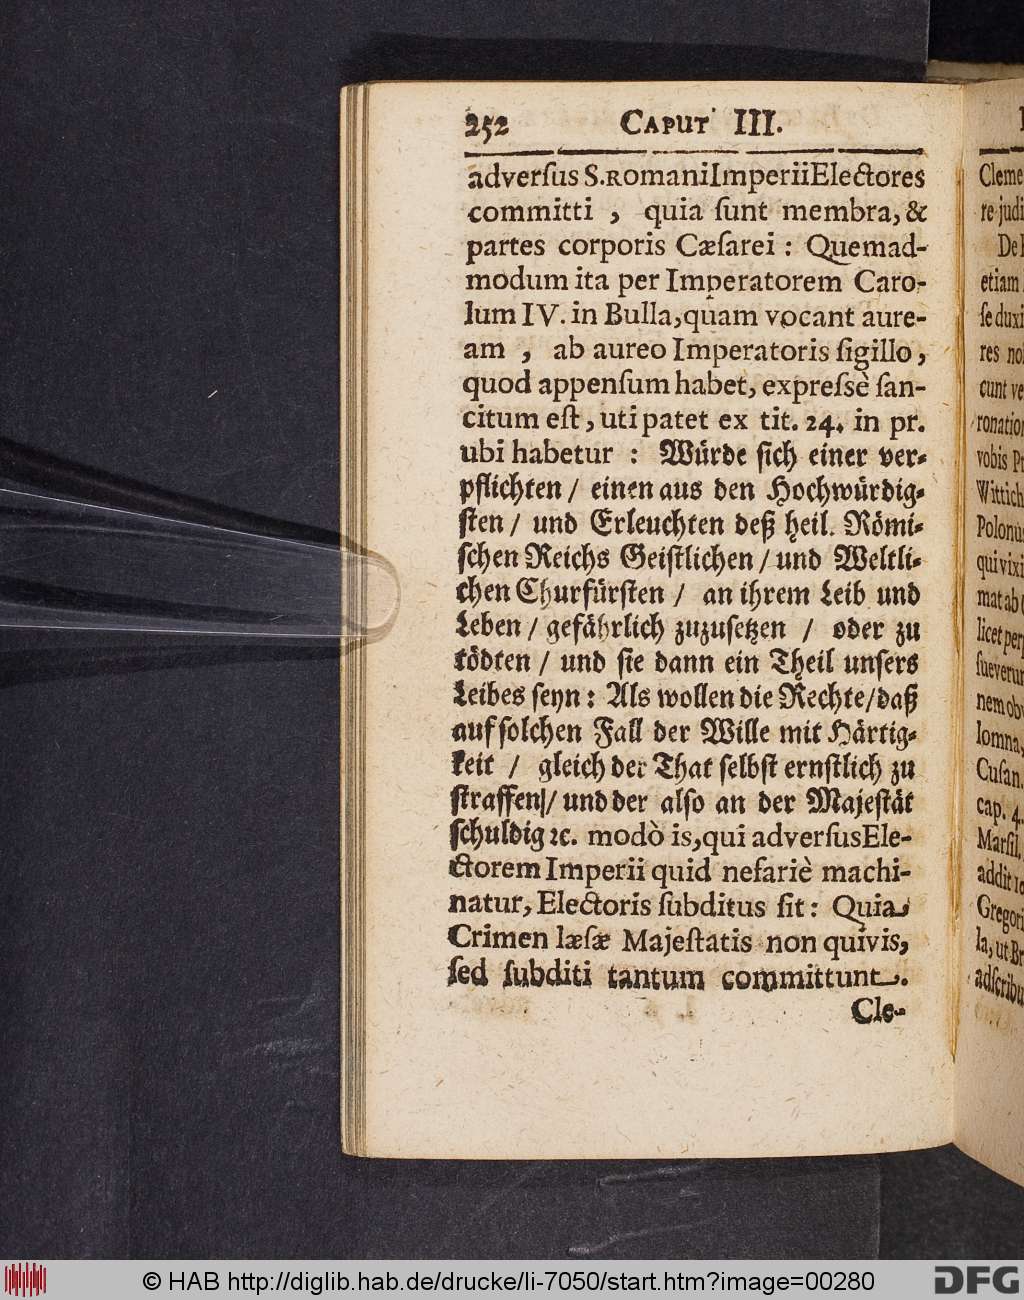 252 CAPUT III.
adverſus S. Romani Imperii Electores
committi , quia ſunt membra, &
partes corporis Cæſarei : Quemad-
modum ita per Imperatorem Caro-
lum IV. in Bulla, quam vocant aure-
am , ab aureo Imperatoris ſigillo ,
quod appenſum habet, expreſsè ſan-
citum eſt , uti patet ex tit. 24. in pr.
ubi habetur : Würde ſich einer ver-
pflichten / einen aus den Hochwürdig-
ſten / und Erleuchten deß heil. Römi-
ſchen Reichs Geiſtlichen / und Weltli-
chen Churfürſten / an ihrem Leib und
Leben / gefährlich zuzuſetzen / oder zu
tödten / und ſie dann ein Theil unſers
Leibes ſeyn : Als wollen die Rechte / daß
auf ſolchen Fall der Wille mit Härtig-
keit / gleich der That ſelbſt ernſtlich zu
ſtraffen / und der alſo an der Majeſtät
ſchuldig ꝛc. modò is, qui adverſus Ele-
ctorem Imperii quid nefariè machi-
natur, Electoris ſubditus ſit : Quia
Crimen læſæ Majeſtatis non quivis,
ſed ſubditi tantum committunt.
Cle-
Cleme
re judi
etiam
ſe duxi
res
cunt ve
ronatio
vobis
Wittich
Polonus
qui vixi
mat ab
licet per
ſueverun
nem
lomna,
Cuſan.
cap. 4.
Marſil.
addit
Gregori
la, ut
adſcribu
© HAB http://diglib.hab.de/drucke/li-7050/start.htm?image=00280
DFG